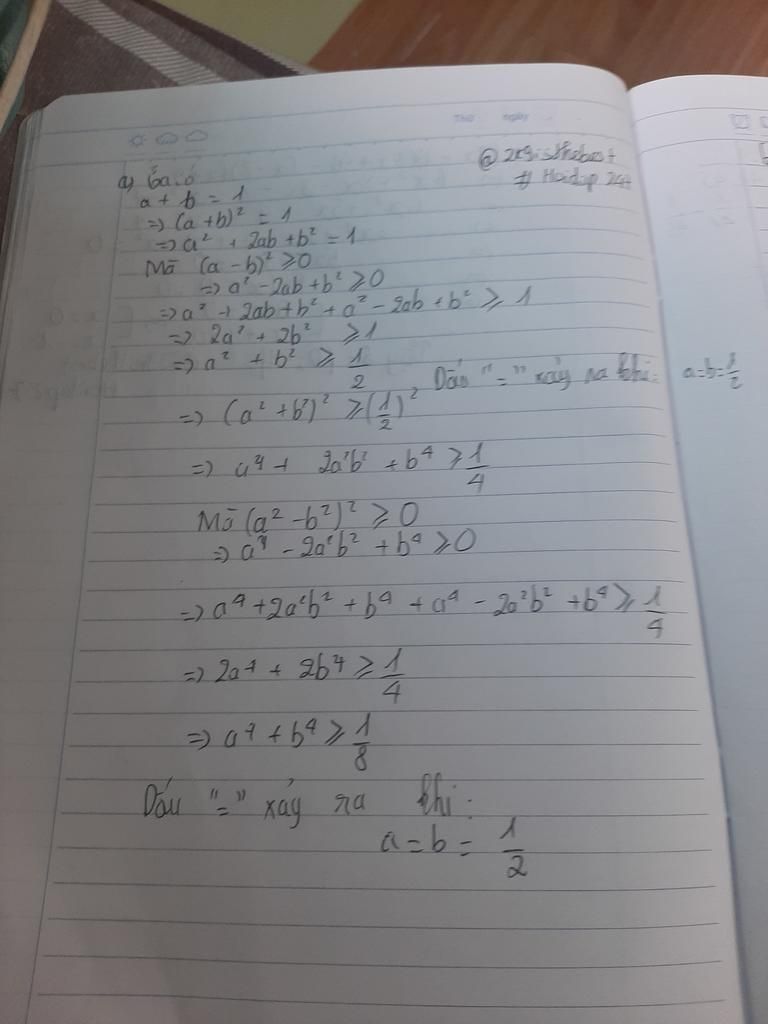 Thứ ngày
@2k9isthebest
# Hoidap 247
a) Ta có
a + b = 1
=> (a+b)² = 1
=> a² + 2ab + b² = 1
Mà (a - b)² ⩾ 0
=> a² - 2ab + b² ⩾ 0
=> a² + 2ab + b² + a² - 2ab + b² ⩾ 1
=> 2a² + 2b² ⩾ 1
=> a² + b² ⩾ 1/2, Dấu "=" xảy ra khi: a=b=1/2
=> (a² + b²)² ⩾ (1/2)²
=> a⁴ + 2a²b² + b⁴ ⩾ 1/4
Mà (a² - b²)² ⩾ 0
=> a⁴ - 2a²b² + b⁴ ⩾ 0
=> a⁴ + 2a²b² + b⁴ + a⁴ - 2a²b² + b⁴ ⩾ 1/4
=> 2a⁴ + 2b⁴ ⩾ 1/4
=> a⁴ + b⁴ ⩾ 1/8
Dấu "=" xảy ra khi:
a = b = 1/2